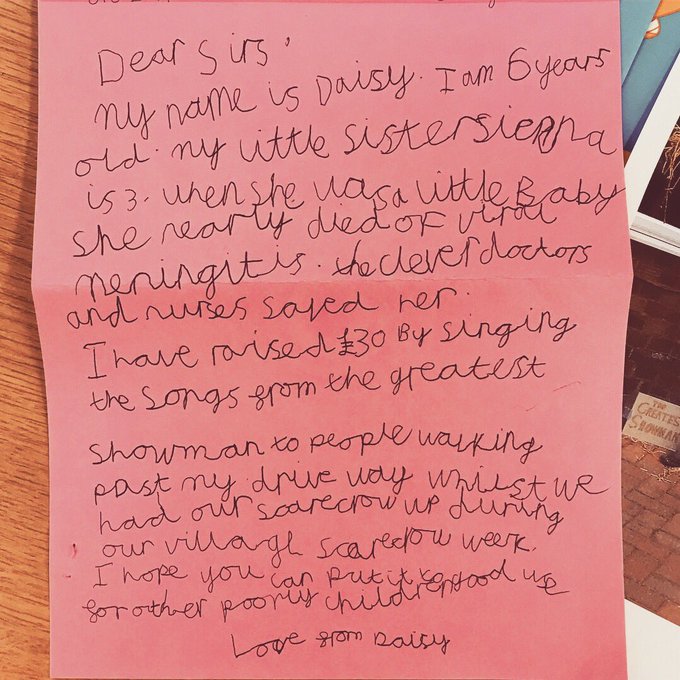 Dear Sirs,
my name is Daisy. I am 6 years
old. my little sister sienna
is 3. when she was a little Baby
she nearly died of viral
meningitis. the clever doctors
and nurses saved her.
I have raised £30 By singing
the songs from the greatest
showman to people walking
past my drive way whilst we
had our scarecrow up during
our village scarecrow week.
I hope you can put it to good use
for other poorly children
Love from Daisy
THE
GREATEST
SHOWMAN